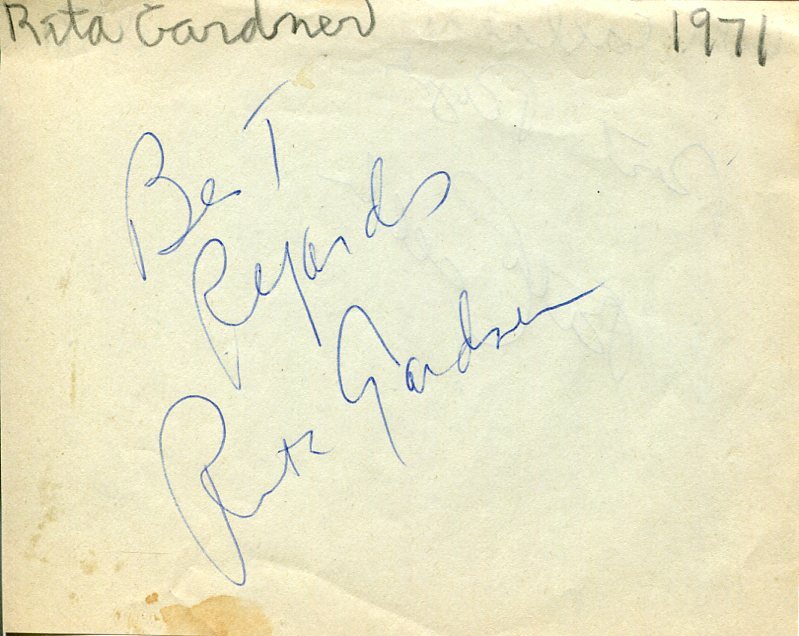 Rita Gardner 1971
Best
Regards
Rita Gardner